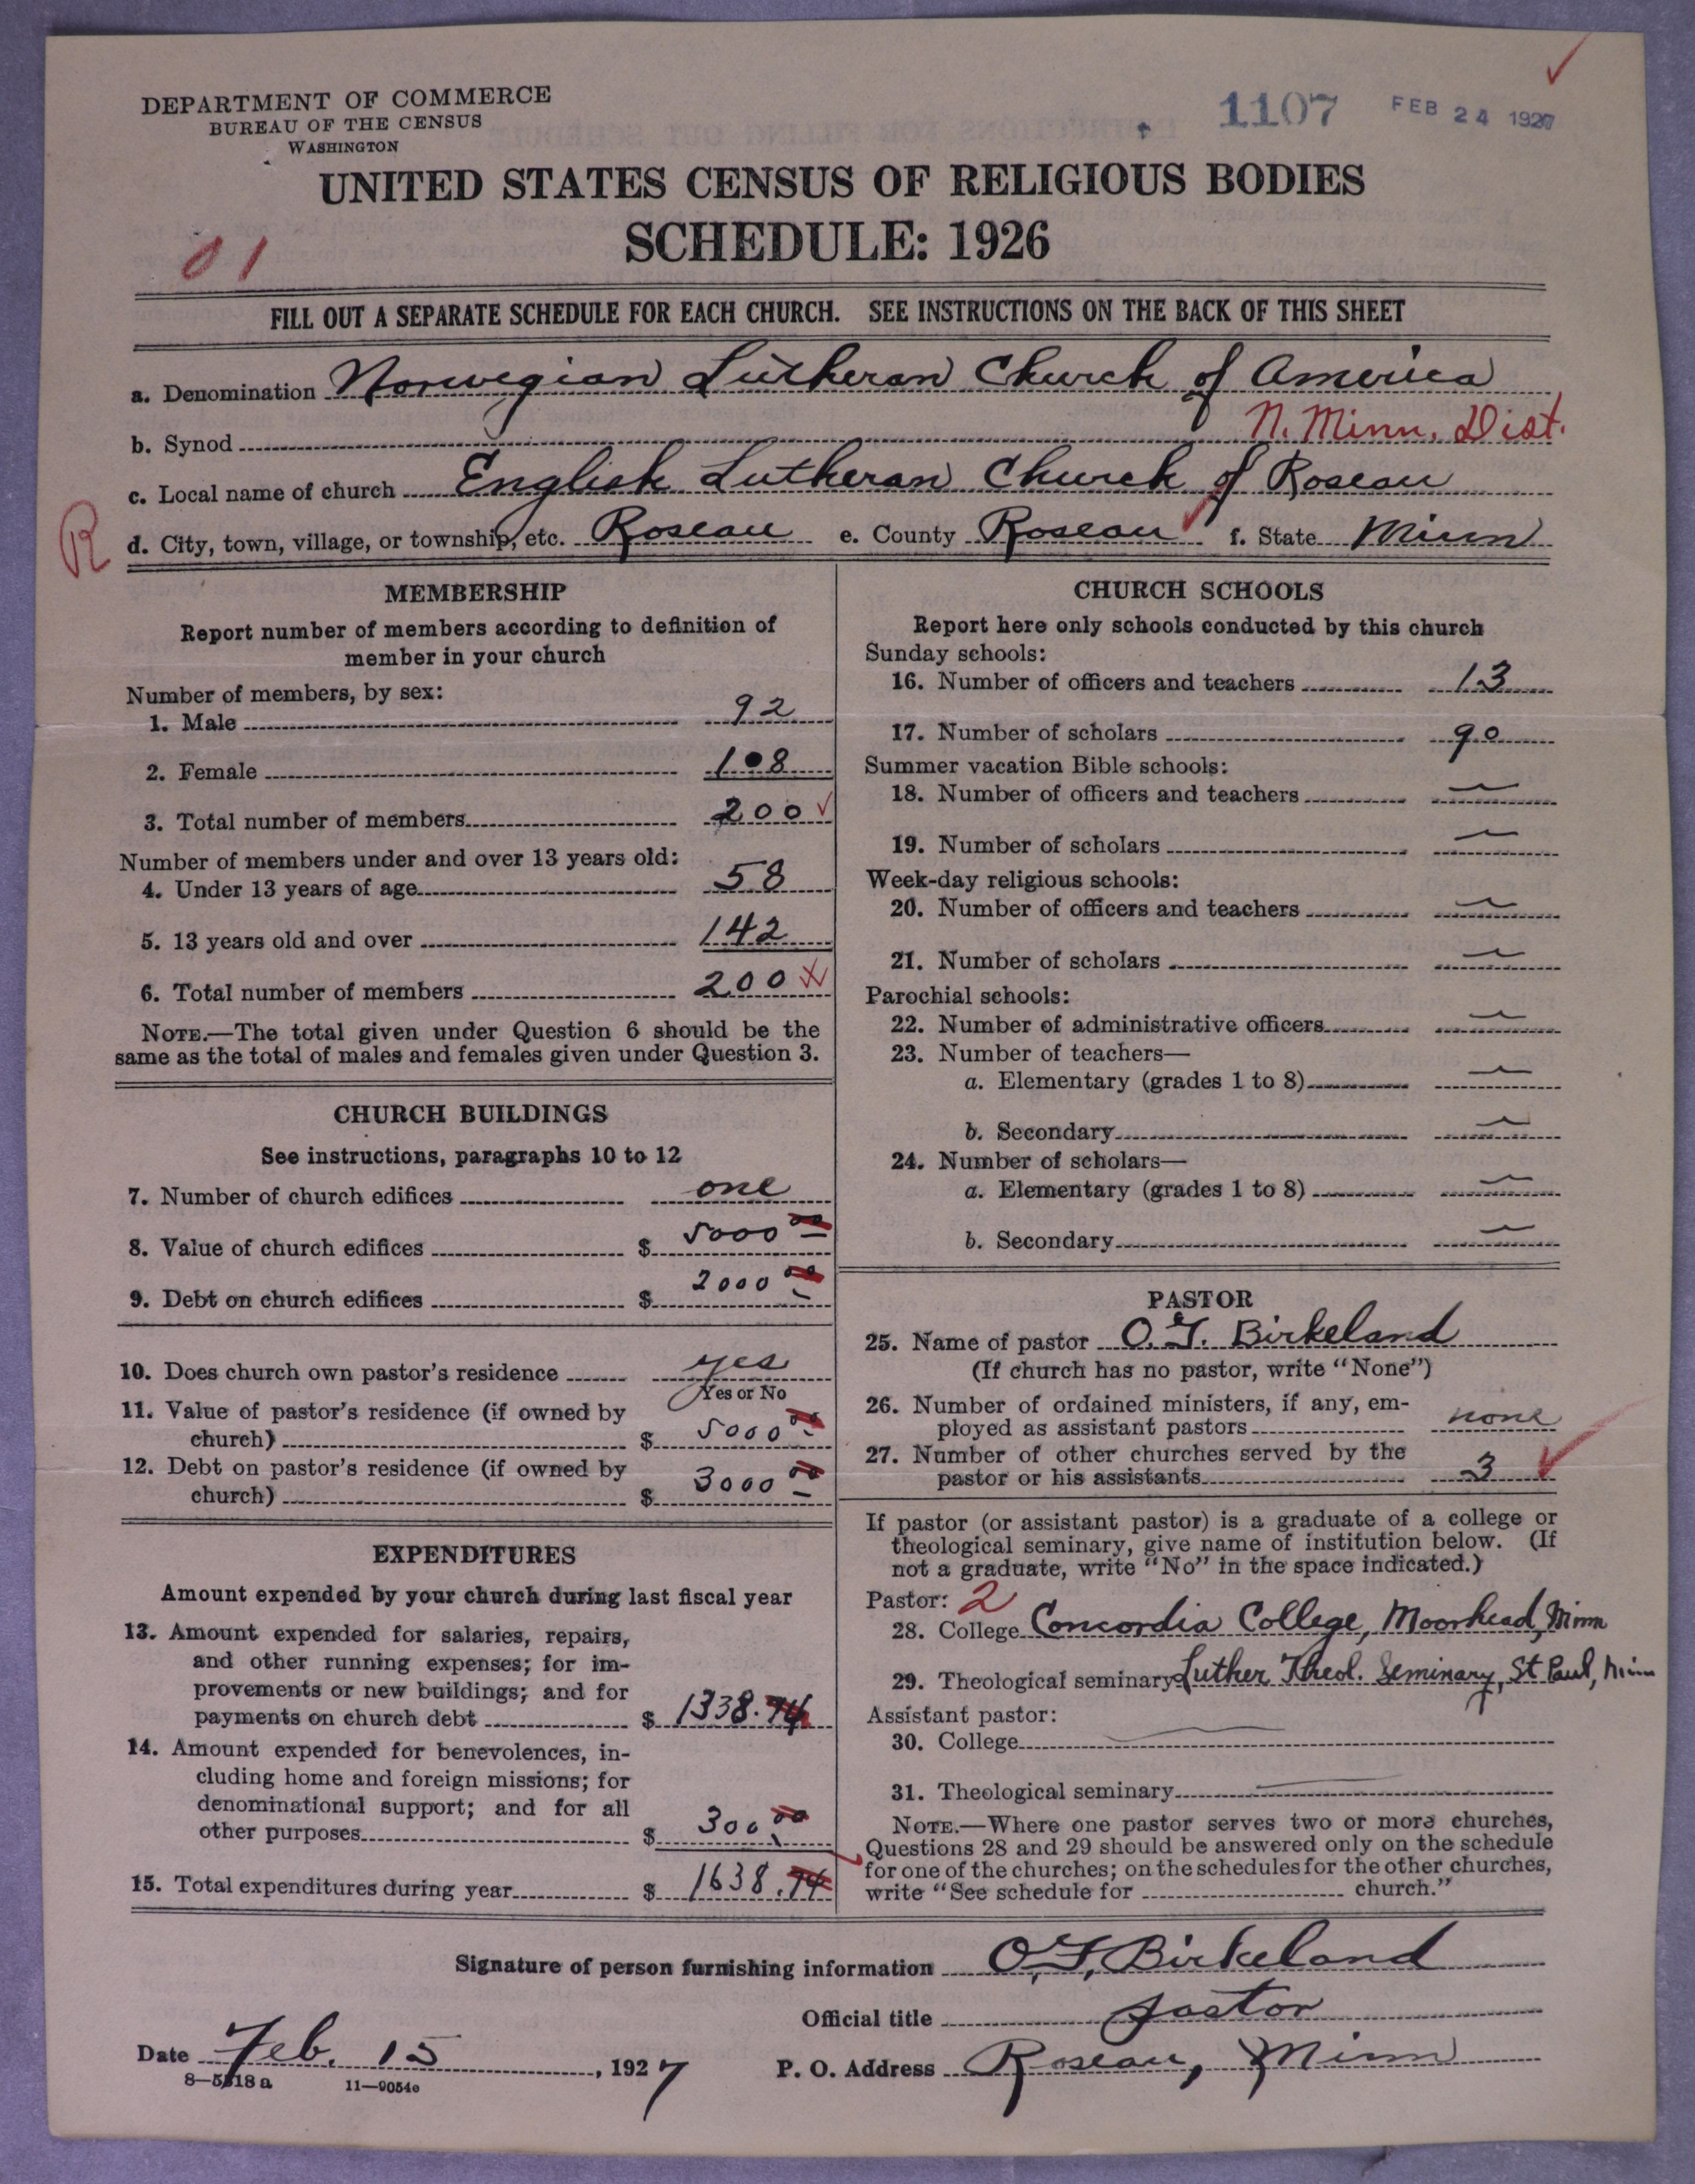 DEPARTMENT OF COMMERCE
BUREAU OF THE CENSUS
WASHINGTON
1107 FEB 24 1927
UNITED STATES CENSUS OF RELIGIOUS BODIES
SCHEDULE: 1926
01
FILL OUT A SEPARATE SCHEDULE FOR EACH CHURCH. SEE INSTRUCTIONS ON THE BACK OF THIS SHEET
a. Denomination Norwegian Lutheran Church of America
b. Synod N. Minn. Dist.
c. Local name of church English Lutheran Church of Roseau
R
d. City, town, village, or township, etc. Roseau e. County Roseau f. State Minn
MEMBERSHIP
Report number of members according to definition of
member in your church
Number of members, by sex:
1. Male 92
2. Female 108
3. Total number of members 200
Number of members under and over 13 years old:
4. Under 13 years of age 58
5. 13 years old and over 142
6. Total number of members 200
NOTE.—The total given under Question 6 should be the
same as the total of males and females given under Question 3.
CHURCH BUILDINGS
See instructions, paragraphs 10 to 12
7. Number of church edifices one
8. Value of church edifices $ 5000 00
9. Debt on church edifices $ 2000 00
10. Does church own pastor's residence yes
Yes or No
11. Value of pastor's residence (if owned by
church) $ 5000 00
12. Debt on pastor's residence (if owned by
church) $ 3000 00
EXPENDITURES
Amount expended by your church during last fiscal year
13. Amount expended for salaries, repairs,
and other running expenses; for im-
provements or new buildings; and for
payments on church debt $ 1338.74
14. Amount expended for benevolences, in-
cluding home and foreign missions; for
denominational support; and for all
other purposes $ 300 00
15. Total expenditures during year $ 1638.74
CHURCH SCHOOLS
Report here only schools conducted by this church
Sunday schools:
16. Number of officers and teachers 13
17. Number of scholars 90
Summer vacation Bible schools:
18. Number of officers and teachers —
19. Number of scholars —
Week-day religious schools:
20. Number of officers and teachers —
21. Number of scholars —
Parochial schools:
22. Number of administrative officers —
23. Number of teachers—
a. Elementary (grades 1 to 8) —
b. Secondary —
24. Number of scholars—
a. Elementary (grades 1 to 8) —
b. Secondary —
PASTOR
25. Name of pastor O. T. Birkeland
(If church has no pastor, write "None")
26. Number of ordained ministers, if any, em-
ployed as assistant pastors none
27. Number of other churches served by the
pastor or his assistants 3
If pastor (or assistant pastor) is a graduate of a college or
theological seminary, give name of institution below. (If
not a graduate, write "No" in the space indicated.)
Pastor: 2
28. College Concordia College, Moorhead, Minn
29. Theological seminary Luther Theol. Seminary, St Paul, Minn
Assistant pastor:
30. College —
31. Theological seminary —
NOTE.—Where one pastor serves two or more churches,
Questions 28 and 29 should be answered only on the schedule
for one of the churches; on the schedules for the other churches,
write "See schedule for church."
Signature of person furnishing information O. T. Birkeland
Official title pastor
Date Feb. 15, 1927 P. O. Address Roseau, Minn
8—5518 a 11—9054c